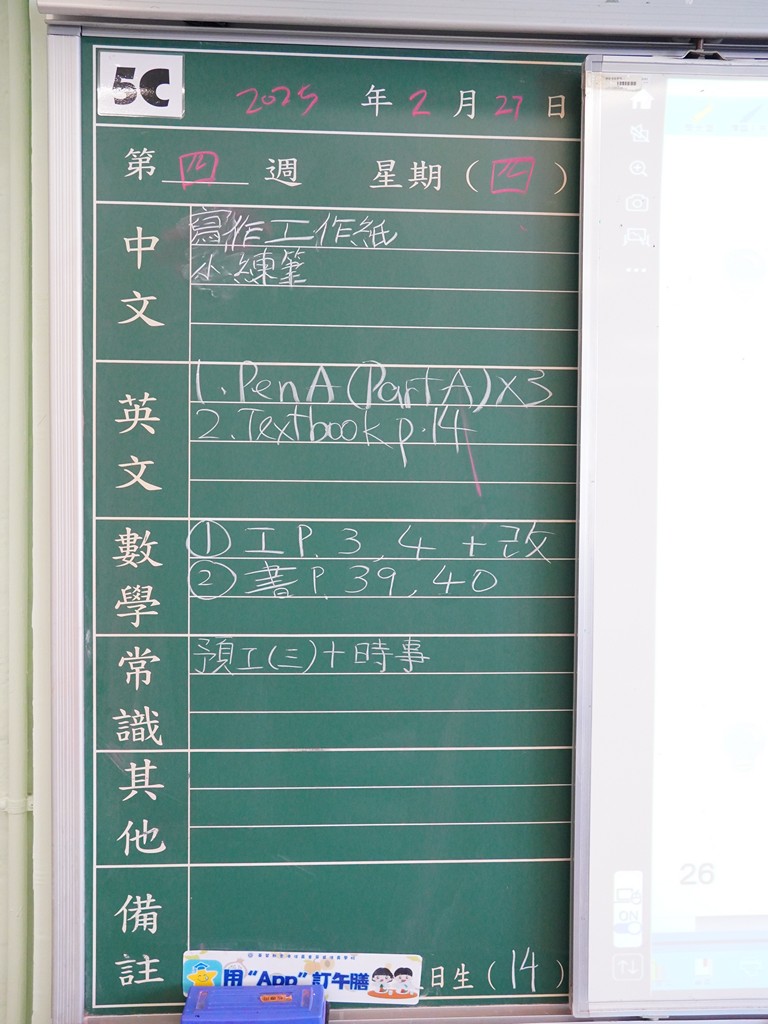 5C
2025 年 2 月 27 日
第 四 週 星期（四）
中文
寫作工作紙
小練筆
英文
1. Pen A (Part A) x3
2. Textbook p.14
數學
① 工 P. 3, 4 + 改
② 書 P. 39, 40
常識
預工(三)+時事
其他
備註
用"App"訂午膳
日生（14）
26
ON